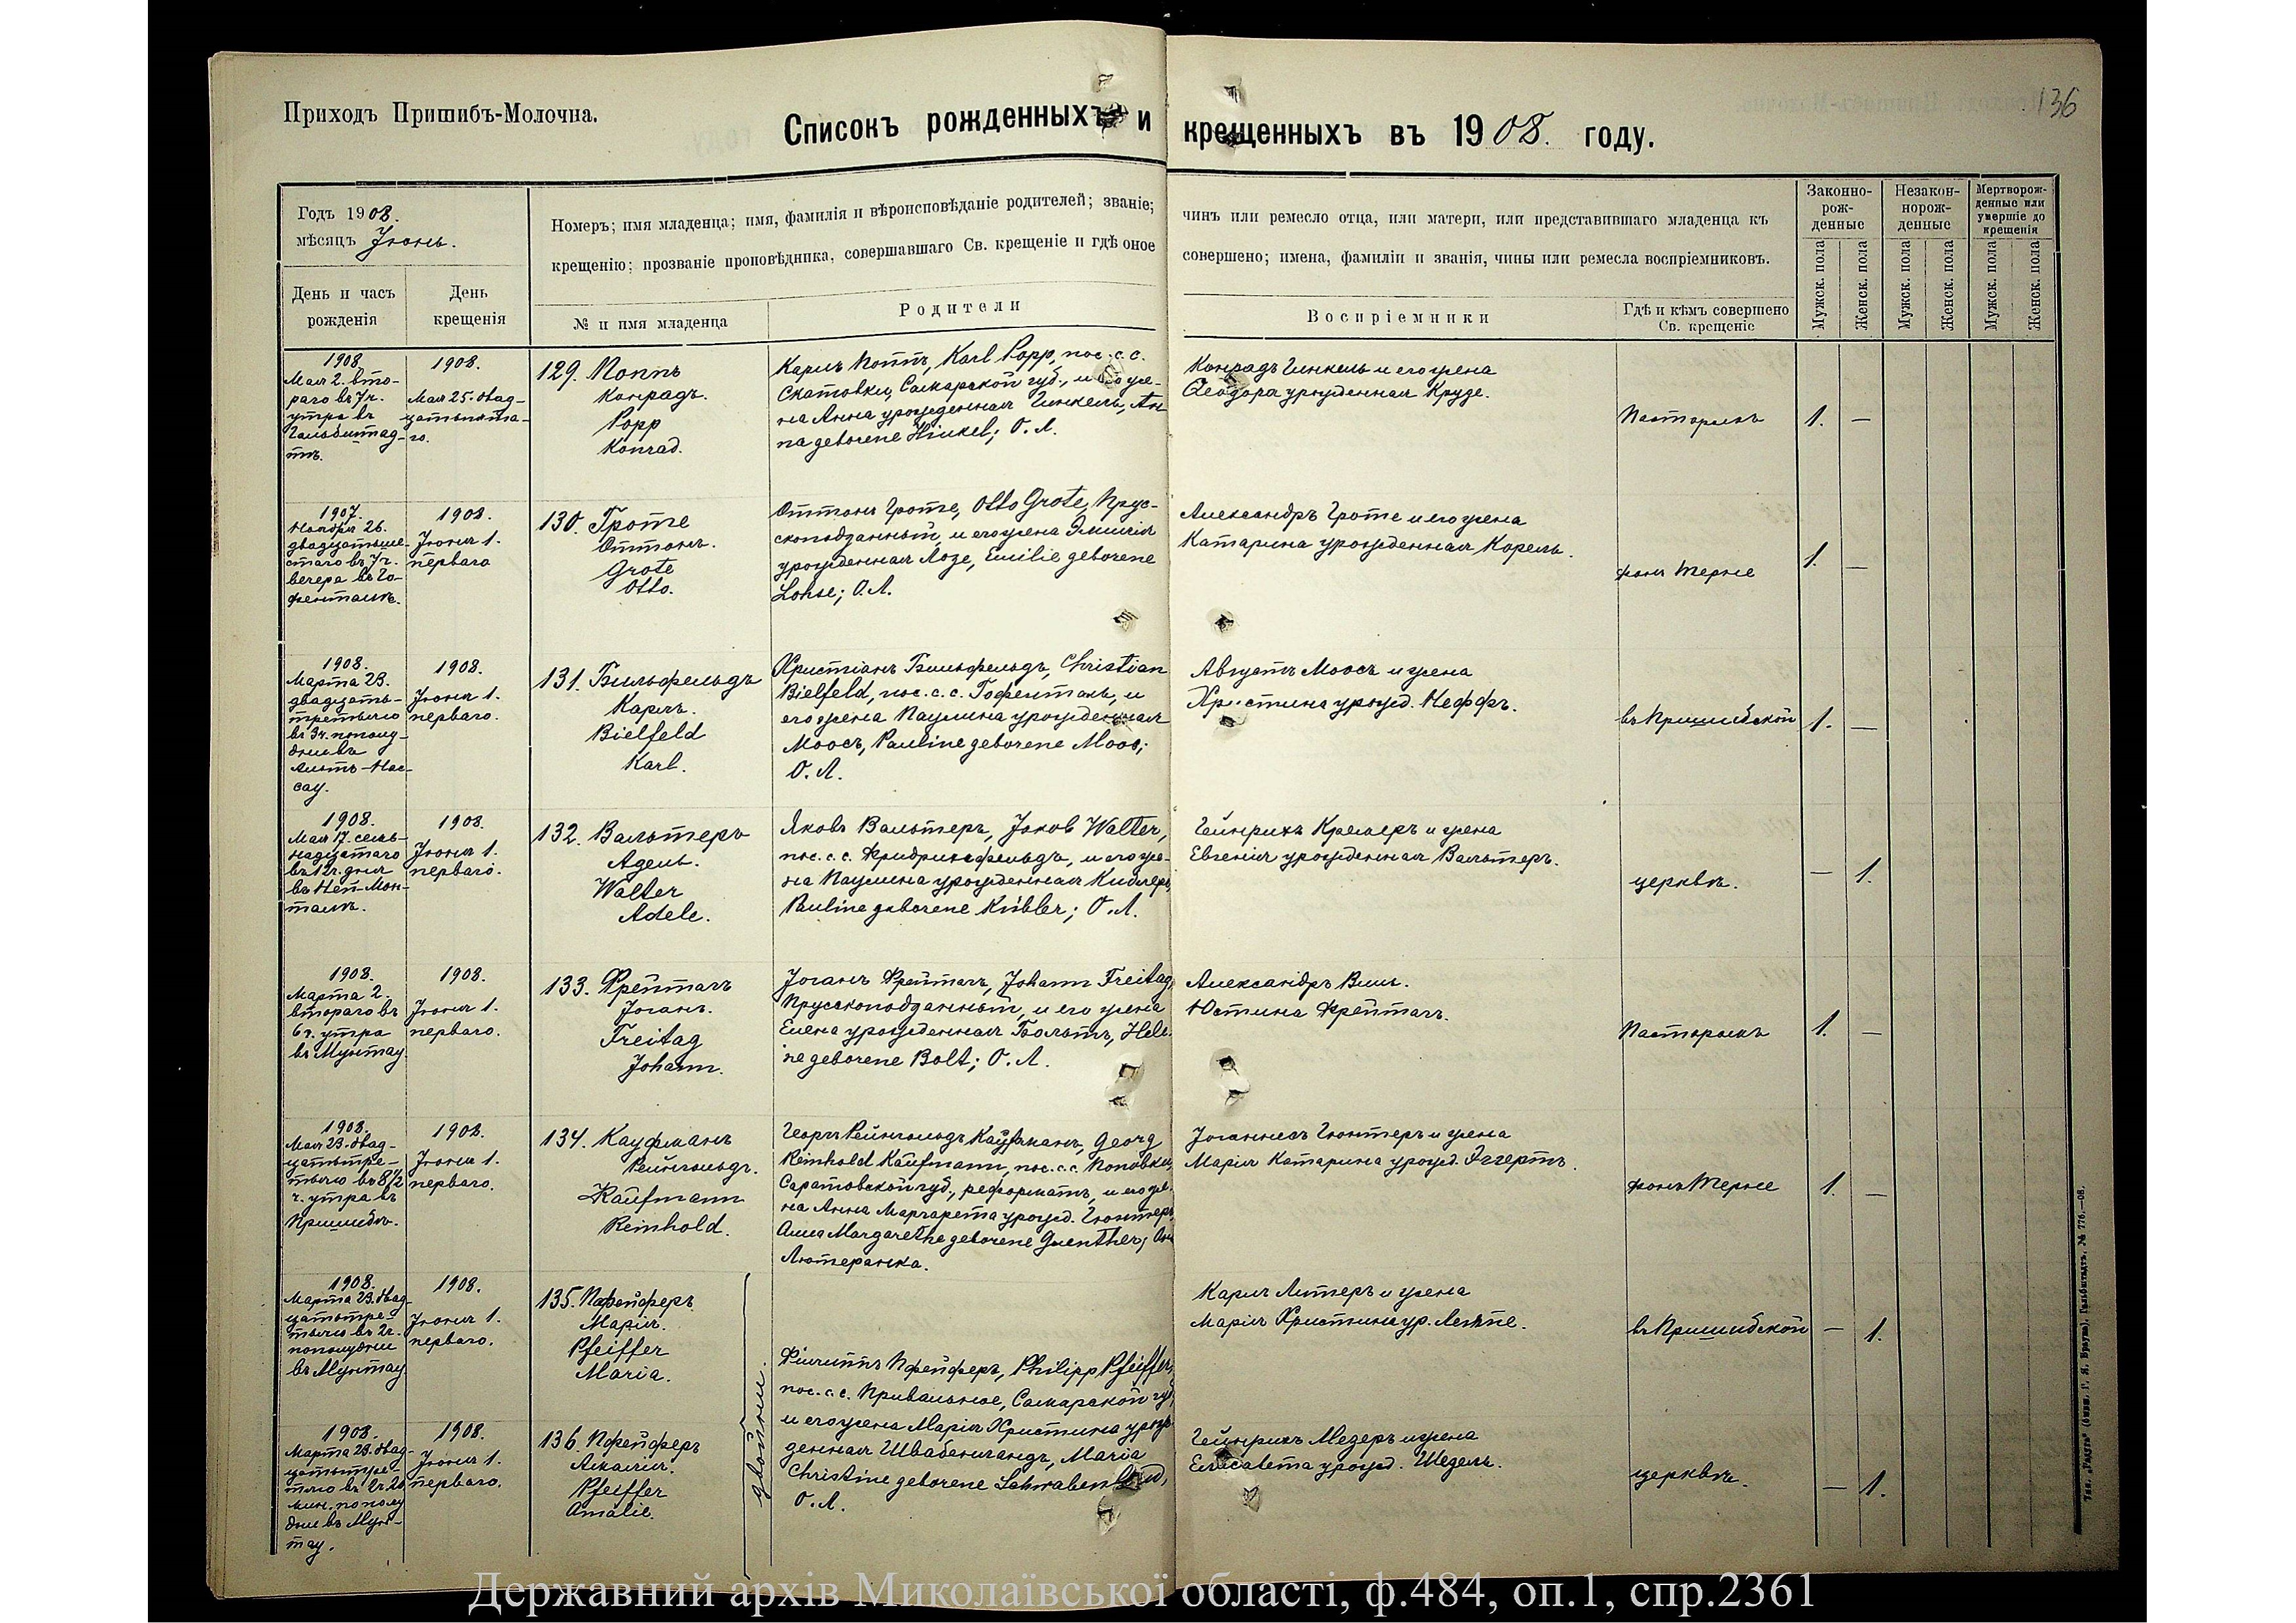 Приходъ Пришибъ-Молочна.
Списокъ рожденныхъ и крещенныхъ въ 1908. году.
136
Годъ 1908.
мѣсяцъ Іюнь.
Номеръ; имя младенца; имя, фамилія и вѣроисповѣданіе родителей; званіе;
крещенію; прозваніе проповѣдника, совершавшаго Св. крещеніе и гдѣ оное
чинъ или ремесло отца, или матери, или представившаго младенца къ
совершено; имена, фамиліи и званія, чины или ремесла воспріемниковъ.
Законно-
рож-
денные
Незакон-
норож-
денные
Мертворож-
денные или
умершіе до
крещенія
День и часъ
рожденія
День
крещенія
№ и имя младенца
Родители
Воспріемники
Гдѣ и кѣмъ совершено
Св. крещеніе
Мужск. пола
Женск. пола
Мужск. пола
Женск. пола
Мужск. пола
Женск. пола
1908.
Мая 2. вто-
раго въ 7 ч.
утра въ
Гальбштад-
тѣ.
1908.
Мая 25. двад-
цатьпята-
го.
129. Поппъ
Конрадъ.
Popp
Konrad.
Карлъ Поппъ, Karl Popp, пос. с. с.
Скатовки, Самарской губ., и его же-
на Анна урожденная Гинкель, An-
na geborene Hinkel; О. Л.
Конрадъ Гинкель и его жена
Ѳеодора урожденная Крузе.
Пасторомъ
1. —
1907.
Ноября 26.
двадцатьше-
стаго въ 7 ч.
вечера въ Го-
фенталѣ.
1908.
Іюня 1.
перваго
130. Гроте
Оттонъ.
Grote
Otto.
Оттонъ Гроте, Otto Grote, Прус-
скоподданный, и его жена Эмилія
урожденная Лозе, Emilie geborene
Lohse; О. Л.
Александръ Гроте и его жена
Катарина урожденная Корель.
фонъ Терне
1. —
1908.
Марта 23.
двадцать-
третьяго
въ 3 ч. пополуд-
дни въ
Альтъ-Нас-
сау.
1908.
Іюня 1.
перваго.
131. Бильфельдъ
Карлъ.
Bielfeld
Karl.
Христіанъ Бильфельдъ, Christian
Bielfeld, пос. с. с. Гофенталь, и
его жена Паулина урожденная
Моосъ, Pauline geborene Moos;
О. Л.
Августъ Моосъ и жена
Христина урожд. Неффъ.
въ Пришибской
1. —
1908.
Мая 17. семь-
надцатаго
въ 12 ч. дня
въ Ней-Мон-
талѣ.
1908.
Іюня 1.
перваго.
132. Вальтеръ
Адель.
Walter
Adele.
Яковъ Вальтеръ, Jakob Walter,
пос. с. с. Фридрихсфельдъ, и его же-
на Паулина урожденная Киблеръ,
Pauline geborene Kübler; О. Л.
Гейнрихъ Кремеръ и жена
Евгенія урожденная Вальтеръ.
церквѣ.
— 1.
1908.
Марта 2.
втораго въ
6 ч. утра
въ Мунтау.
1908.
Іюня 1.
перваго.
133. Фрейтагъ
Іоганъ.
Freitag
Johann.
Іоганъ Фрейтагъ, Johann Freitag,
Прусскоподданный, и его жена
Елена урожденная Больтъ, Hele-
ne geborene Bolt; О. Л.
Александръ Виль.
Юстина Фрейтагъ.
Пасторомъ
1. —
1908.
Мая 23. двад-
цатьтре-
тьяго въ 8 1/2
ч. утра въ
Пришибѣ.
1908.
Іюня 1.
перваго.
134. Кауфманъ
Рейнгольдъ.
Kaufmann
Reinhold.
Георгъ Рейнгольдъ Кауфманъ, Georg
Reinhold Kaufmann, пос. с. с. Поповки,
Саратовской губ., реформатъ, и его же-
на Анна Маргарета урожд. Гюнтеръ,
Anna Margarethe geborene Guenther;
Лютеранка.
Іоганнесъ Гюнтеръ и жена
Марія Катарина урожд. Эггертъ.
фонъ Терне
1. —
1908.
Марта 23. двад-
цатьтре-
тьяго въ 2 ч.
пополудни
въ Мунтау.
1908.
Іюня 1.
перваго.
135. Пфейферъ
Марія.
Pfeiffer
Maria.
двойни.
Филиппъ Пфейферъ, Philipp Pfeiffer,
пос. с. с. Привальное, Самарской губ.,
и его жена Марія Христина урож-
денная Швабенландъ, Maria
Christine geborene Schwabenland;
О. Л.
Карлъ Литеръ и жена
Марія Христина ур. Лейпе.
въ Пришибской
— 1.
1908.
Марта 23. двад-
цатьтре-
тьяго въ 2 ч. 20
мин. полу-
дни въ Мун-
тау.
1908.
Іюня 1.
перваго.
136. Пфейферъ
Амалія.
Pfeiffer
Amalie.
Гейнрихъ Медеръ и жена
Елисабета урожд. Шедель.
церквѣ.
— 1.
Тип. „Радуга" (бывш. Г. Я. Брауна), Гальбштадтъ. № 776.—08.
Державний архів Миколаївської області, ф.484, оп.1, спр.2361